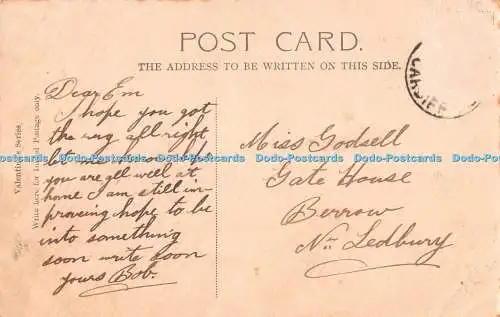 POST CARD.
THE ADDRESS TO BE WRITTEN ON THIS SIDE.
CARDIFF
Valentine's Series
Write here for Inland Postage only.
Dear Em
I hope you got
the rug all right
let me hope
you are all well at
home I am still im-
proving hope to be
into something
soon write soon
yours Bob.
Miss Godsell
Gate House
Berrow
Nr Ledbury
Dodo-Postcards Dodo-Postcards Dodo-Postcards Dodo-Postcards Dodo-Postcards Dodo-Postcards